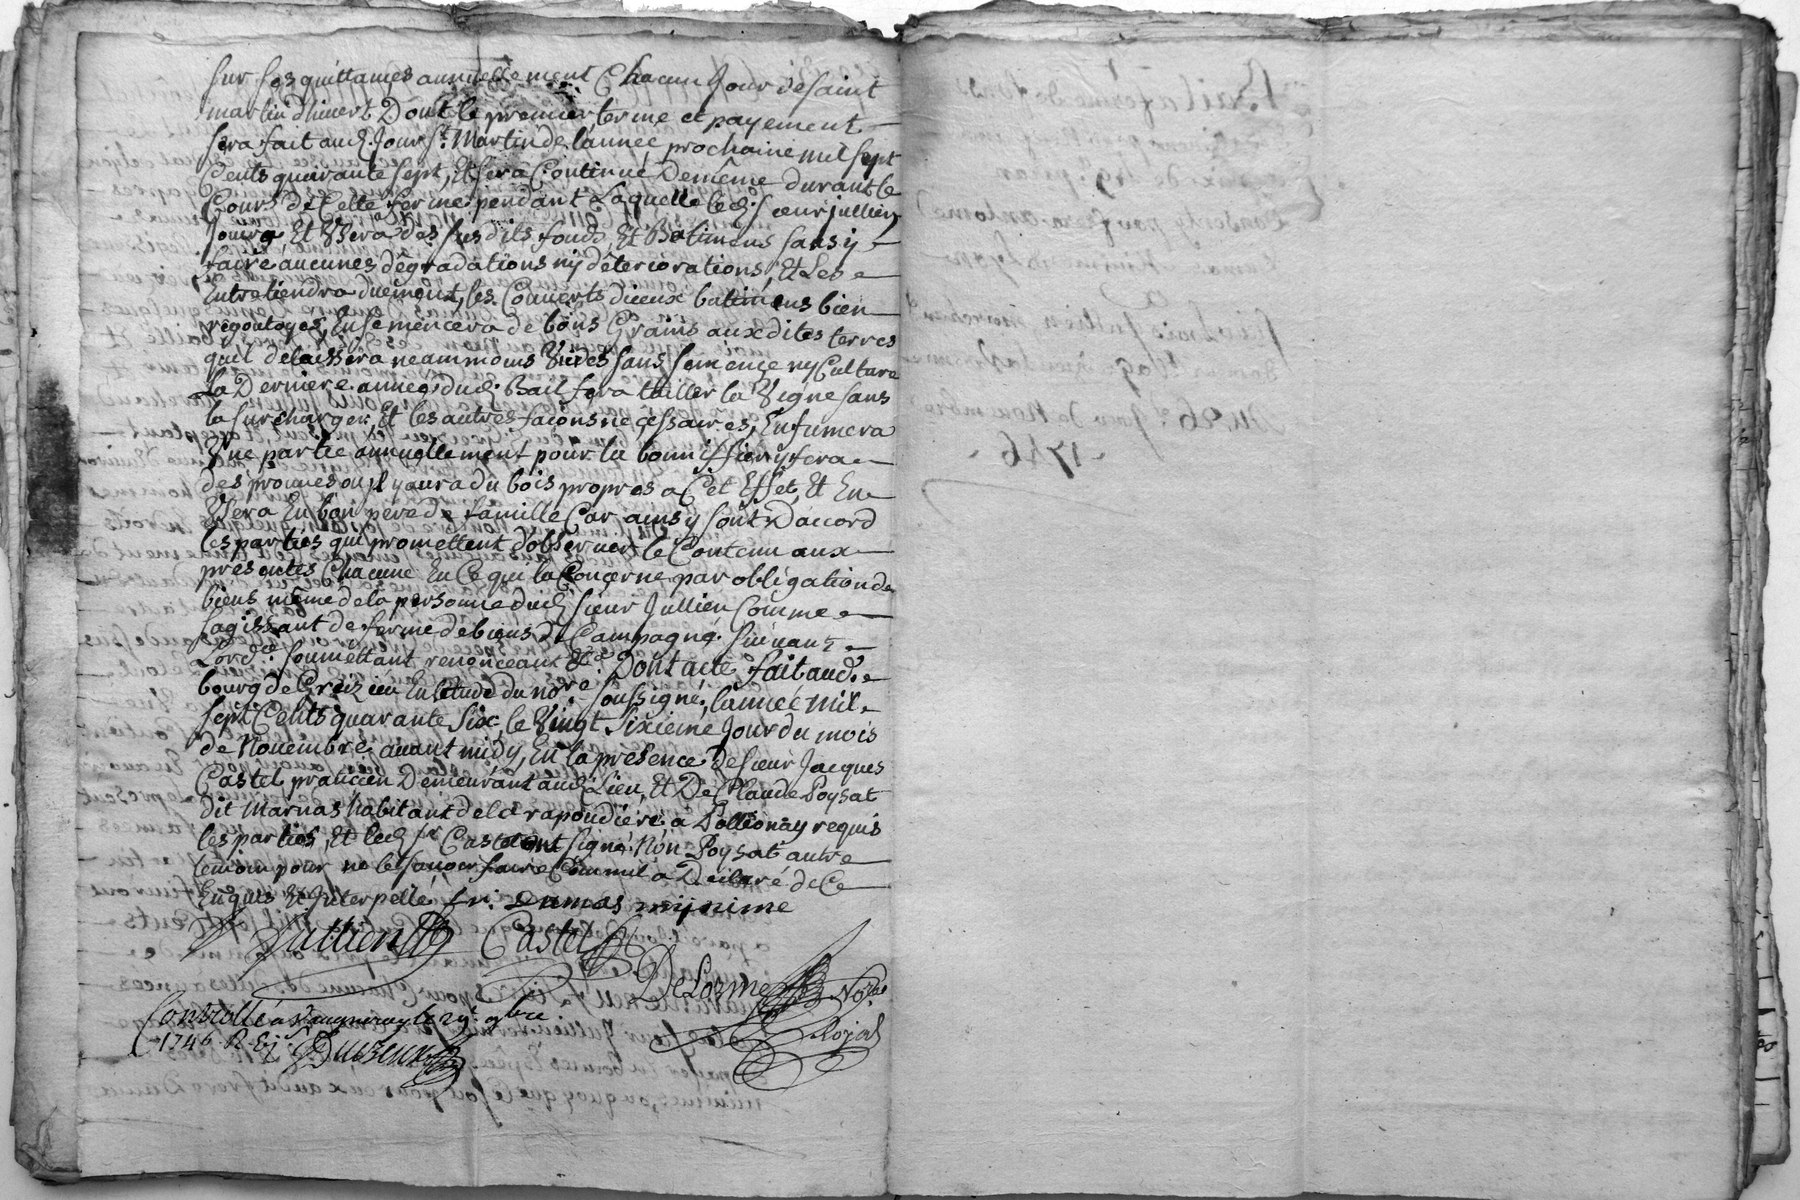 sur ses quittances annuellement Chacun Jour de saint
martin d'hivert Dont le premier terme et payement
sera fait aud. Jour St. Martin de l'année prochaine mil sept
Cents quarante sept, Et sera Continué De même durant le
Cours de Cette ferme pendant Laquelle led. sieur jullien
Jouira Et Usera des susdits fonds Et Batimens sans y
faire aucunes dégradations ny déteriorations, Et Les
Entretiendra duëment, les Couverts d'iceux batimens bien
régoutoyés, Ensemencera de bons Grains auxdites terres
qu'il delaissera neammoins Vuides sans semence ny Culture
La Derniere année dud. Bail fera tailler la Vigne sans
la surcharger, Et les autres façons necessaires, En fumera
Une partie annuellement pour la bonniffier y fera
des provues ou Il y aura du bois propres a Cet Effet, Et En
Usera En bon pere de famille Car ainsy sont D'accord
les parties qui promettent d'observer le Contenu aux
presentes Chacune En Ce qui la Concerne par obligation de
biens même de la personne dud. sieur Jullien Comme
s'agissant de ferme de biens de Campagne suivant
L'ord.ce soumettant renonceant &a. Dont acte fait aud.
bourg de Greizieu En l'étude du no.re soussigné, l'année mil
sept Cents quarante Six, le Vingt Sixieme Jour du mois
de Novembre avant midy, En la presence de sieur Jacques
Castel praticien Demeurant aud. Lieu, Et De Claude Poysat
dit Marnas habitant de la rapoudiére a Pollionay requis
les parties, Et led. sr. Castel ont signé Non Poysat autre
temoin pour ne le sçavoir faire Comme il a Declaré de Ce
Enquis Et Interpellé fr. Dumas minime
Jullien Castel
DeLorme No.re
Royal
Controllé a Vaugneray le 29e. 9bre
1746. R. Duzeux
Bail a ferme de fonds
Jullien marchand
Du 26e Jour de Novembre
1746